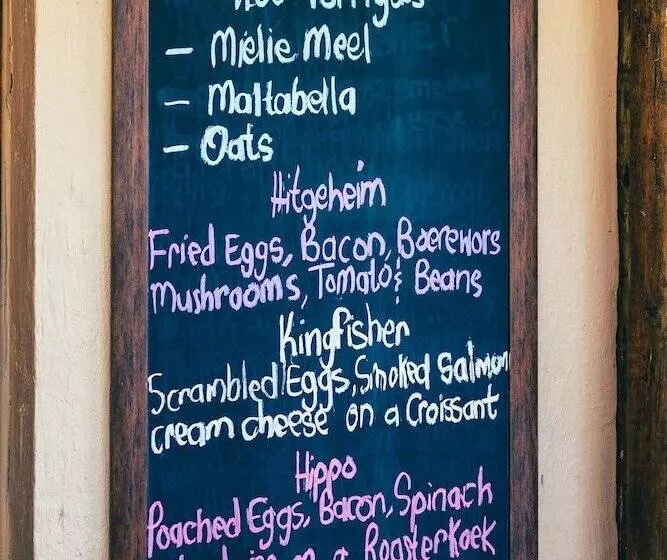 — Mielie Meel
— Maltabella
— Oats
Hitgeheim
Fried Eggs, Bacon, Boerewors
Mushrooms, Tomato & Beans
Kingfisher
Scrambled Eggs, Smoked Salmon
cream cheese on a Croissant
Hippo
Poached Eggs, Bacon, Spinach
on a Roosterkoek